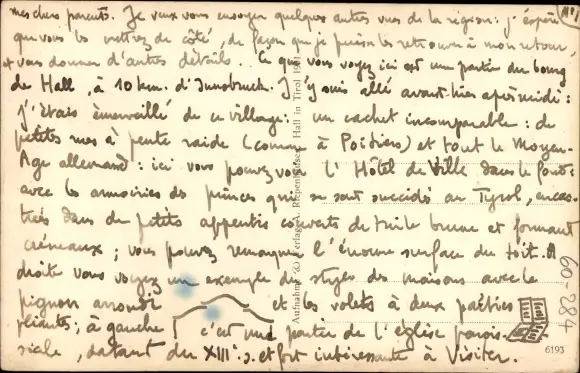 mes chers parents. Je veux vous envoyer quelques autres vues de la région : j'espère
que vous les mettrez de côté, de façon que je puisse les retrouver à mon retour,
et vous donner d'autres détails.. Ce que vous voyez ici est une partie du bourg
de Hall, à 10 km. d'Innsbruck. J'y suis allé avant-hier après-midi :
j'étais émerveillé de ce village : un cachet incomparable : de
petites rues à pente raide (comme à Poitiers) et tout le Moyen-
Age allemand : ici vous pouvez voir l'Hôtel de Ville dans le fond
avec les armoiries des princes qui se sont succédés au Tyrol, encas-
trées dans de petits appentis couverts de tuile brune et formant
créneaux ; vous pouvez remarquer l'énorme surface du toit. A
droite vous voyez un exemple du style des maisons avec le
pignon arrondi et les volets à deux parties
pliantes ; à gauche c'est une partie de l'église parois-
siale, datant du XIIIe s. et fort intéressante à visiter.
Aufnahme u. Verlag A. Riepenhausen, Hall in Tirol
60-284
6193